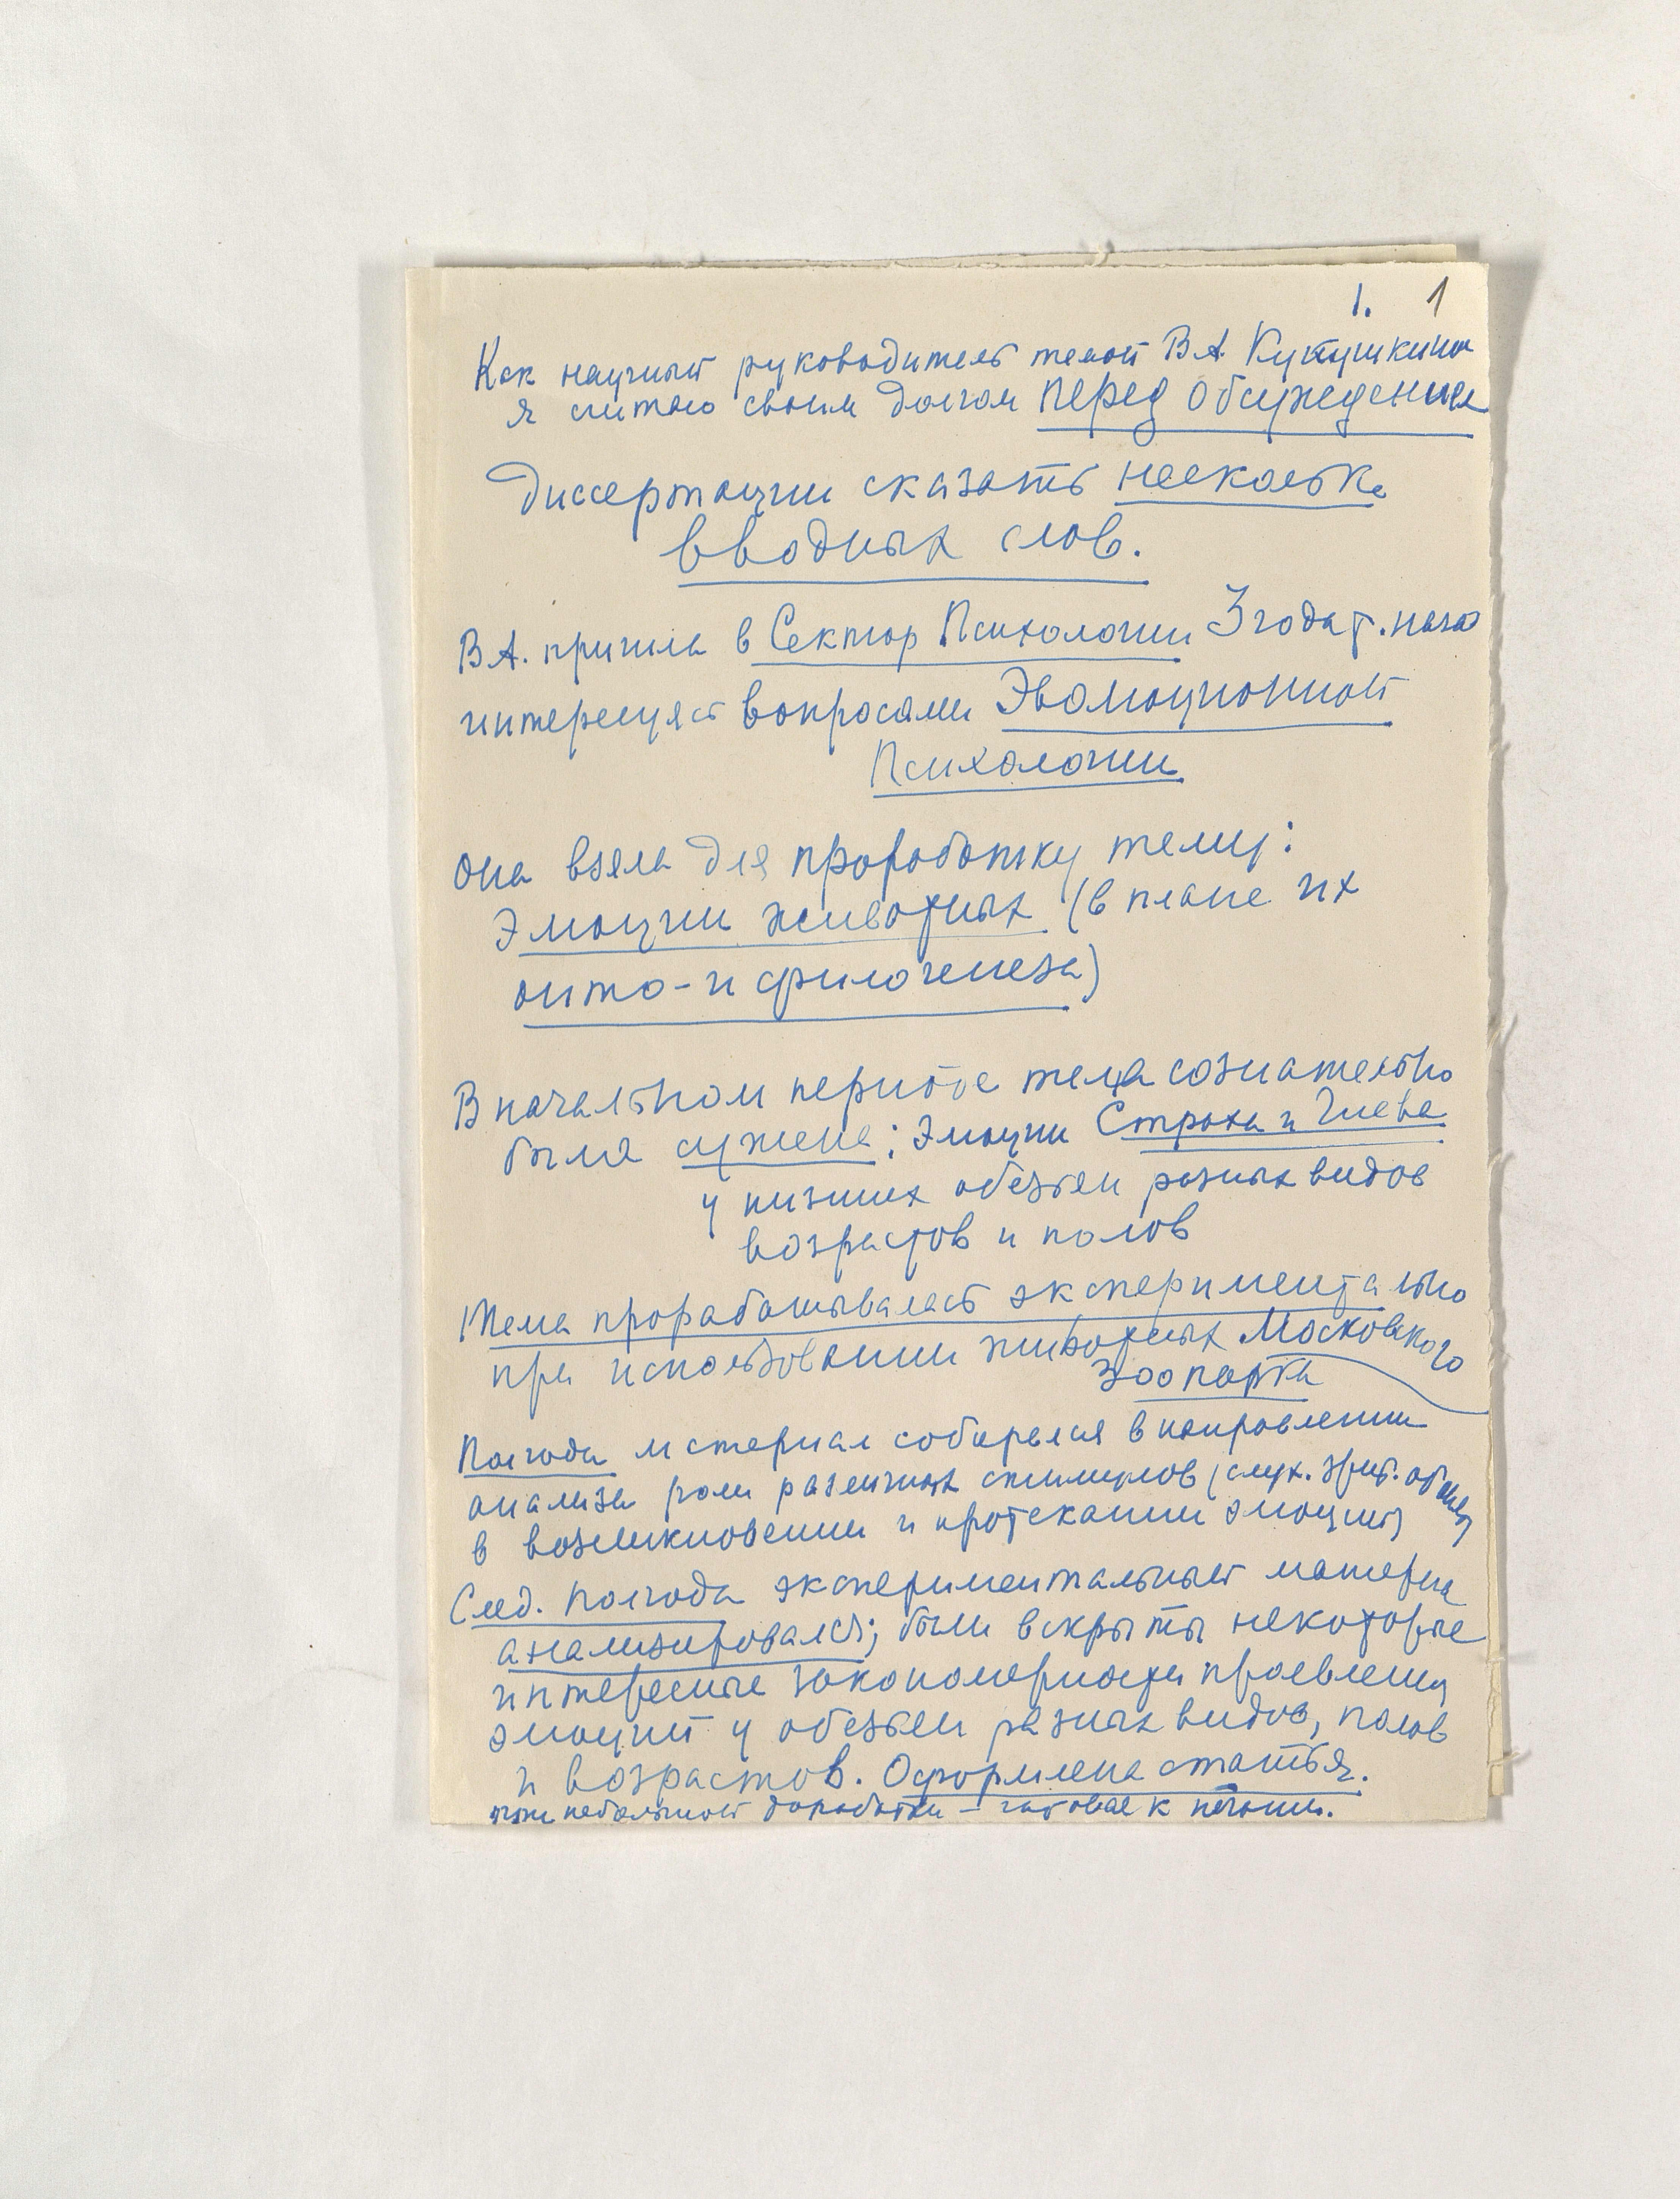 1. 1
Как научный руководитель темой В.А. Кутушкина
я считаю своим долгом перед обсуждением
диссертации сказать несколько
вводных слов.
В.А. пришла в Сектор Психологии 3 года т. наза
интересуясь вопросами Эволюционной
Психологии
Она взяла для проработку тему:
Эмоции животных (в плане их
онто- и филогенеза)
В начальном периоде тема сознательно
была сужена: Эмоции Страха и Гнева
у низших обезьян разных видов
возрастов и полов
Тема прорабатывалась экспериментально
при использовании животных Московского
Зоопарка
Полгода материал собирался в направлении
анализа роли различных стимулов (слух. зрит.
в возникновении и протекании эмоций)
След. полгода экспериментальный материа
анализировался; были вскрыты некоторые
интересные закономерности проявления
эмоций у обезьян разных видов, полов
и возрастов. Оформлена статья.
при небольшой доработки – готовая к печати.